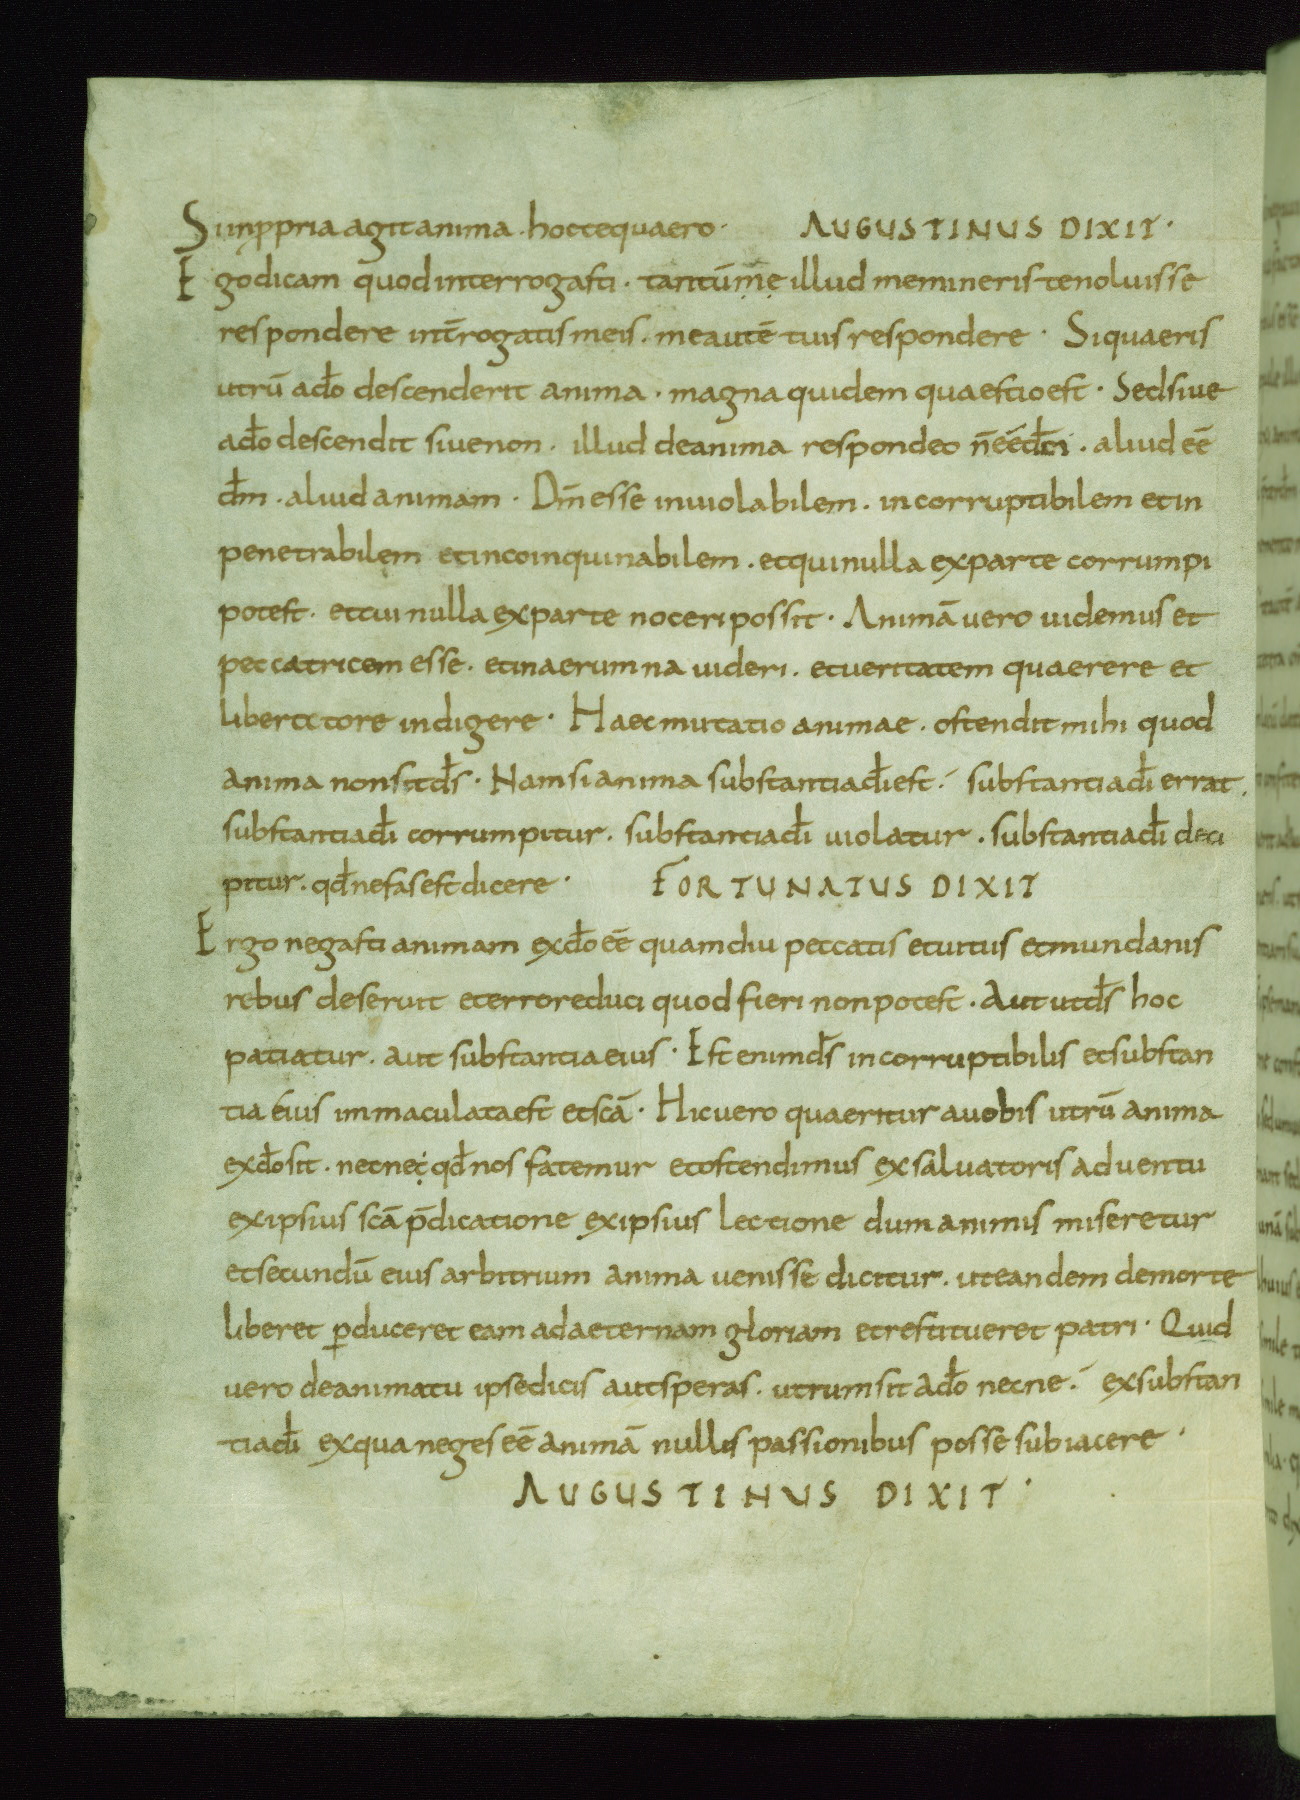 Sun ppria agit anima · hoc te quaero · AUGUSTINUS DIXIT ·
Ego dicam quod interrogasti · tantū me illud memineris te noluisse
respondere int̄rogatis meis · me autē tuis respondere · Si quaeris
utrū a do̅ descenderit anima · magna quidem quaestio est · Sed sive
a do̅ descendit sive non · illud de anima respondeo n̄ eē dm̅ · aliud eē
dm̅ · aliud animam · Dm̅ esse inviolabilem · incorruptibilem et in
penetrabilem et incoinquinabilem · et qui nulla ex parte corrumpi
potest · et cui nulla ex parte noceri possit · Animā vero videmus et
peccatricem esse · et in aerumna videri · et veritatem quaerere et
liberatore indigere · Haec mutatio animae · ostendit mihi quod
anima non sit ds̅ · Nam si anima substantia di̅ est · substantia di̅ errat ·
substantia di̅ corrumpitur · substantia di̅ violatur · substantia di̅ deci
pitur · qd̅ nefas est dicere · FORTUNATUS DIXIT
Ergo negasti animam ex do̅ eē quamdiu peccatis et vitiis et mundanis
rebus deseruit et errore duci quod fieri non potest · Aut ut ds̅ hoc
patiatur · aut substantia eius · Est enim ds̅ incorruptibilis et substan
tia eius immaculata est et scā · Hic vero quaeritur a vobis utrū anima
ex do̅ sit · nec ne qd̅ nos fatemur et ostendimus ex salvatoris adventu
ex ipsius scā p̄dicatione ex ipsius lectione dum animis miseretur
et secundū eius arbitrium anima venisse dicitur · ut eandem de morte
liberet p̱duceret eam ad aeternam gloriam et restitueret patri · Quid
vero de anima tu ipse dicis aut speras · utrum sit a do̅ nec ne · ex substan
tia di̅ ex qua neges eē animā nullis passionibus posse subiacere ·
AUGUSTINUS DIXIT ·